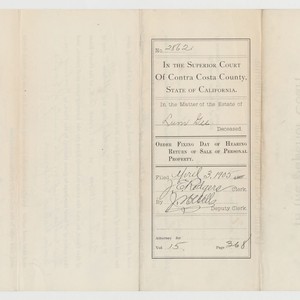 No. 2862
In the Superior Court
Of Contra Costa County,
State of California.
In the Matter of the Estate of
Lum Gee
Deceased
Order Fixing Day of Hearing
Return of Sale of Personal
Property.
Filed April 3, 1905
J. E. Rodgers Clerk
By J. H. Wells
Deputy Clerk
Attorney for
Vol. 15. Page 368